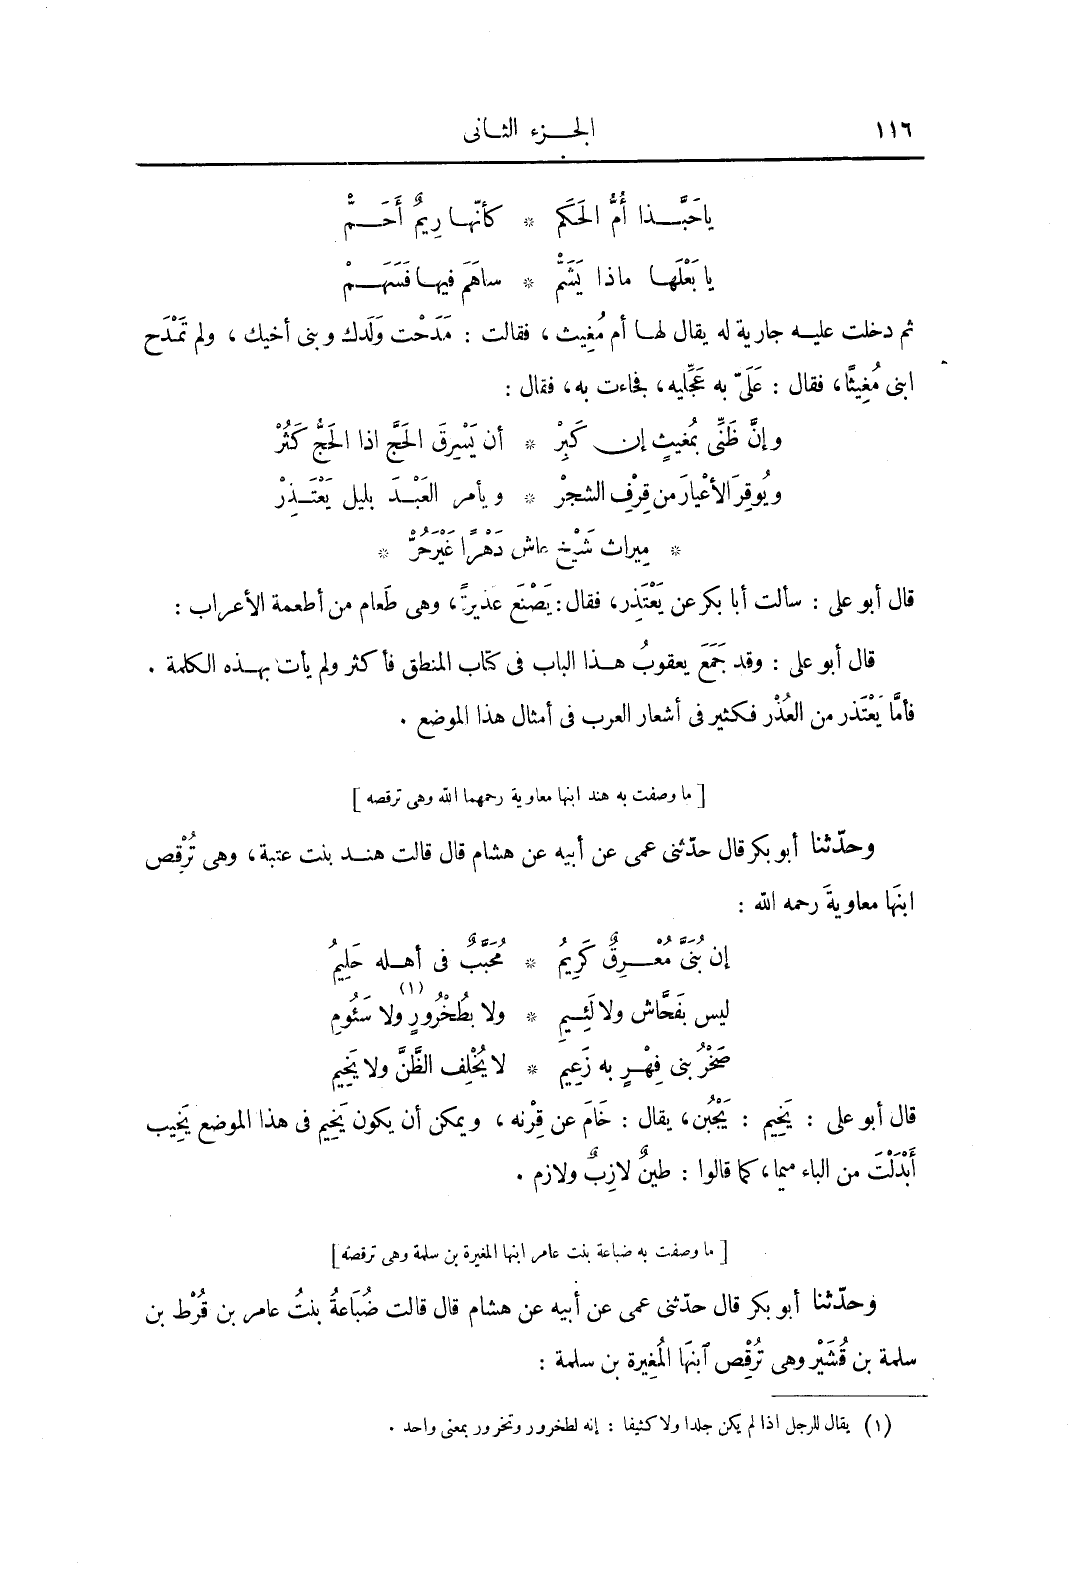 ١١٦ الجزء الثانى
ياحَبَّذا أُمُّ الحَكَمِ * كأنّها رِيمٌ أَحَمّْ
يا بَعْلَها ماذا يَشَمّْ * ساهَمَ فيها فَسَهَمْ
ثم دخلت عليه جارية له يقال لها أم مُغِيث، فقالت : مَدَحْت وَلَدك وبنى أخيك، ولم تَمْدَح
ابنى مُغِيثًا، فقال : عَلَىّ به عَجِّليه، فجاءت به، فقال :
وإنَّ ظَنِّى بمُغيثٍ إن كَبِرْ * أن يَسْرِقَ الحَجَّ اذا الحَجُّ كَثُرْ
ويُوقِرَ الأعْيارَ من قِرْفِ الشجرْ * ويأمر العَبْدَ بليل يَعْتَذِرْ
* مِيراث شَيْخٍ عاش دَهْرًا غَيْرَ حُرّْ *
قال أبو على : سألت أبا بكر عن يَعْتَذِر، فقال : يَصْنَع عَذيرَةً، وهى طَعام من أطعمة الأعراب :
قال أبو على : وقد جَمَعَ يعقوبُ هذا الباب فى كتاب المنطق فأكثر ولم يأت بهذه الكلمة .
فأمَّا يَعْتَذر من العُذْر فكثير فى أشعار العرب فى أمثال هذا الموضع .
[ ما وصفت به هند ابنها معاوية رحمهما الله وهى ترقصه ]
وحدّثنا أبو بكر قال حدّثنى عمى عن أبيه عن هشام قال قالت هند بنت عتبة، وهى تُرْقِص
ابنَها معاويةَ رحمه الله :
إن بُنَىَّ مُعْرِقٌ كَرِيمُ * مُحَبَّبٌ فى أهله حَلِيمُ
ليس بفَحَّاش ولا لَئِيمِ * ولا بطُخْرُورٍ(١) ولا سَئُومِ
صَخْرُ بنى فِهْرٍ به زَعِيم * لا يُخْلِف الظَّنَّ ولا يَخِيم
قال أبو على : يَخِيم : يَجْبُن، يقال : خَامَ عن قِرْنه، ويمكن أن يكون يَخِيم فى هذا الموضع يَخِيب
أَبْدَلَتْ من الباء ميما، كما قالوا : طينٌ لازِبٌ ولازم .
[ ما وصفت به ضباعة بنت عامر ابنها المغيرة بن سلمة وهى ترقصه ]
وحدّثنا أبو بكر قال حدّثنى عمى عن أبيه عن هشام قال قالت ضُبَاعةُ بنتُ عامر بن قُرْط بن
سلمة بن قُشَيْر وهى تُرْقِص ٱبنَها المُغِيرة بن سلمة :
(١) يقال للرجل اذا لم يكن جلدا ولا كثيفا : إنه لطخرور وتخرور بمعنى واحد .